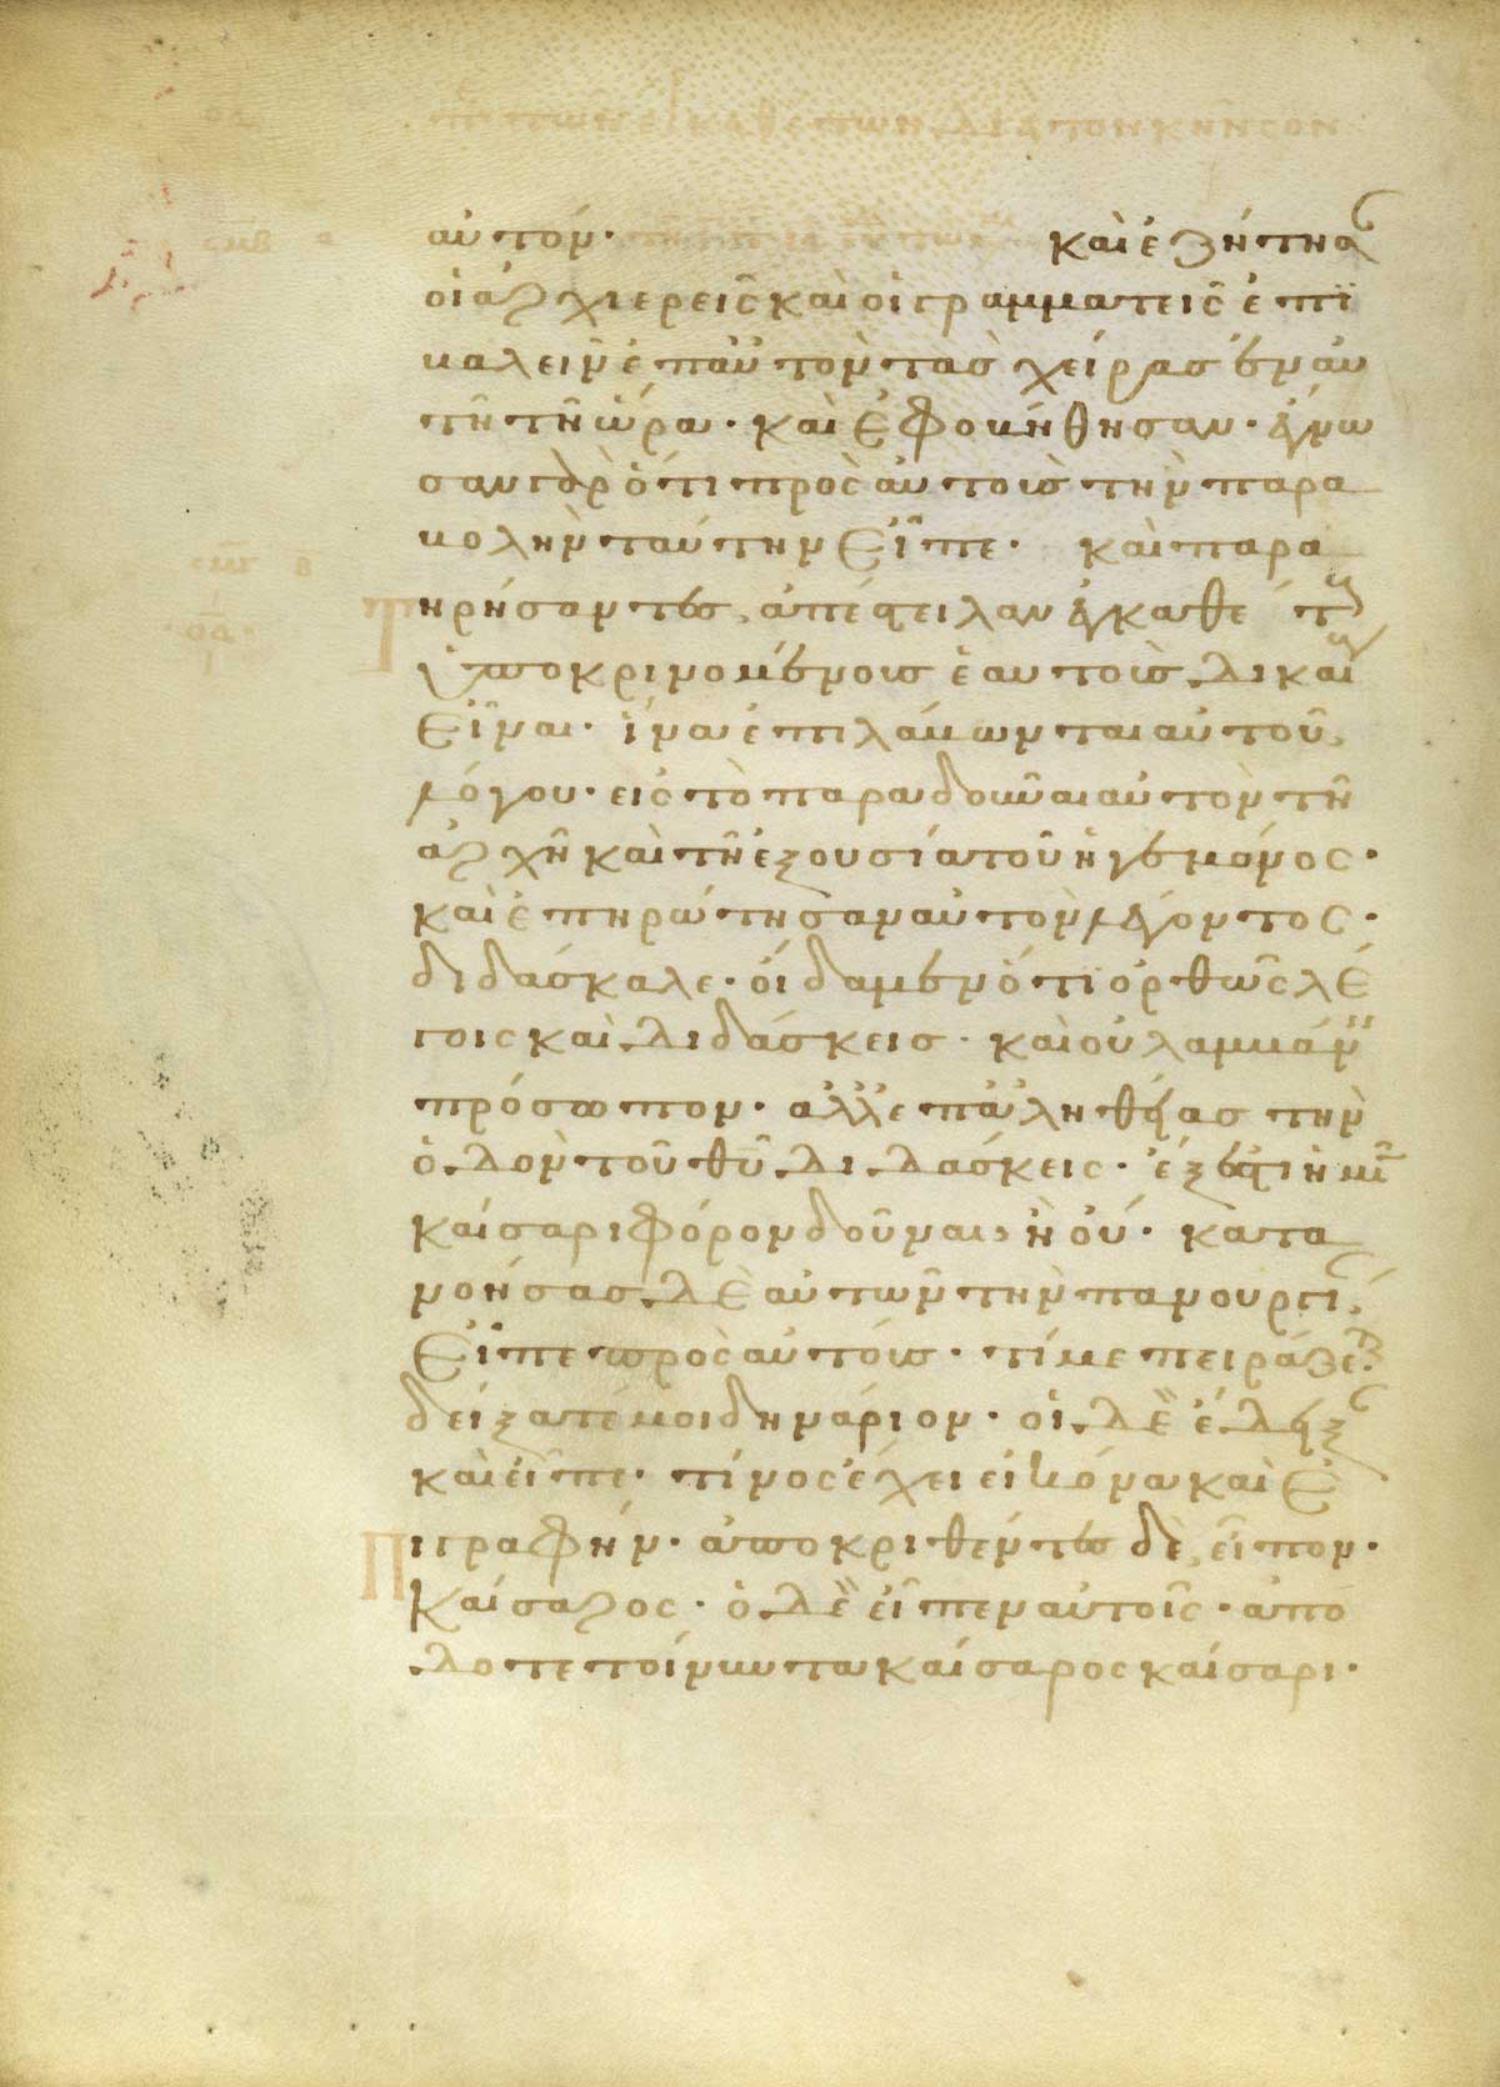 πε τῶν ἐγκαθέτων διὰ τὸν κῆνσον
αὐτόν· καὶ ἐζήτησ
οἱ ἀρχιερεῖς καὶ οἱ γραμματεῖς ἐπι
βαλεῖν ἐπ αὐτὸν τὰς χεῖρας ἐν αὐ
τῆ τῆ ὥρα· καὶ ἐφοβήθησαν· ἔγνω
σαν γὰρ ὅτι πρὸς αὐτοὺς τὴν παρα
βολὴν ταύτην εἶπε· καὶ παρα
τηρήσαντες, ἀπέστειλαν ἐγκαθέτ
ὑποκρινομένους ἑαυτοὺς δικαί
εἶναι· ἵνα ἐπιλάβωνται αὐτοῦ
λόγου· εἰς τὸ παραδοῦναι αὐτὸν τῆ
ἀρχῆ καὶ τῆ ἐξουσία τοῦ ἡγεμόνος·
καὶ ἐπηρώτησαν αὐτὸν λέγοντες·
διδάσκαλε· οἴδαμεν ὅτι ὀρθῶς λέ
γεις καὶ διδάσκεις· καὶ οὐ λαμβάν
πρόσωπον· ἀλλ ἐπ ἀληθείας τὴν
ὁδὸν τοῦ θῦ διδάσκεις· ἔξεστιν ἡμῖ
καίσαρι φόρον δοῦναι, ἢ οὔ· κατα
νοήσας δὲ αὐτῶν τὴν πανουργί,
εἶπε πρὸς αὐτούς· τί με πειράζε
δείξατέ μοι δηνάριον· οἱ δὲ ἔδειξ
καὶ εἶπε· τίνος ἔχει εἰκόνα καὶ ἐ
πιγραφήν· ἀποκριθέντες δὲ, εἶπον·
Καίσαρος· ὁ δὲ εἶπεν αὐτοῖς· ἀπό
δοτε τοίνυν τὰ καίσαρος καίσαρι·